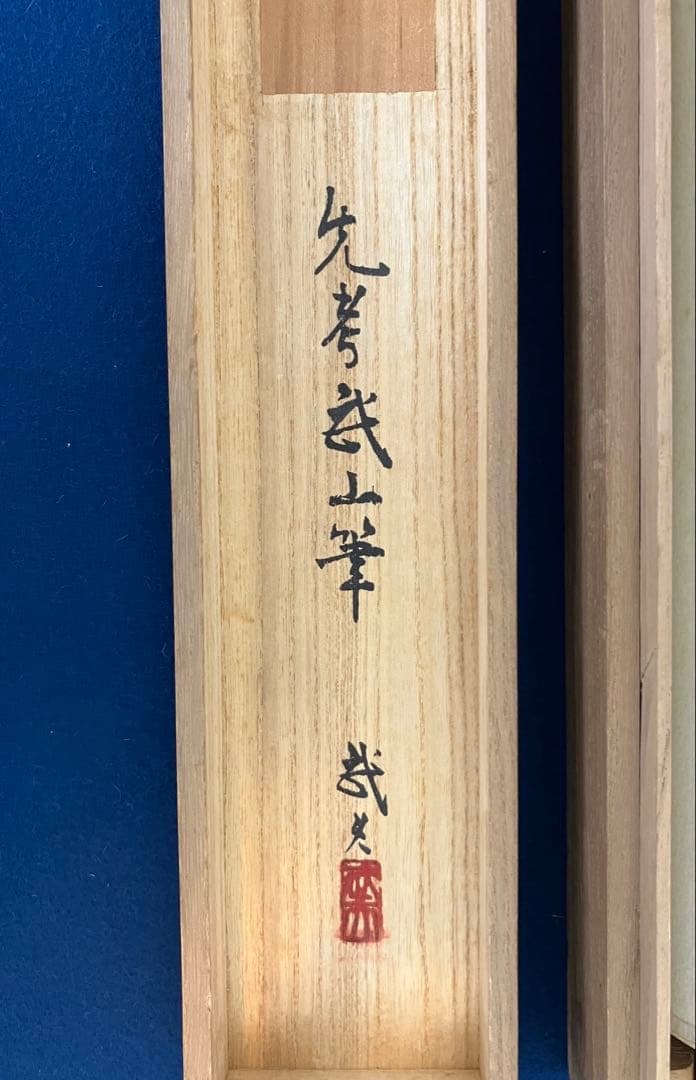 先考武山筆
武夫